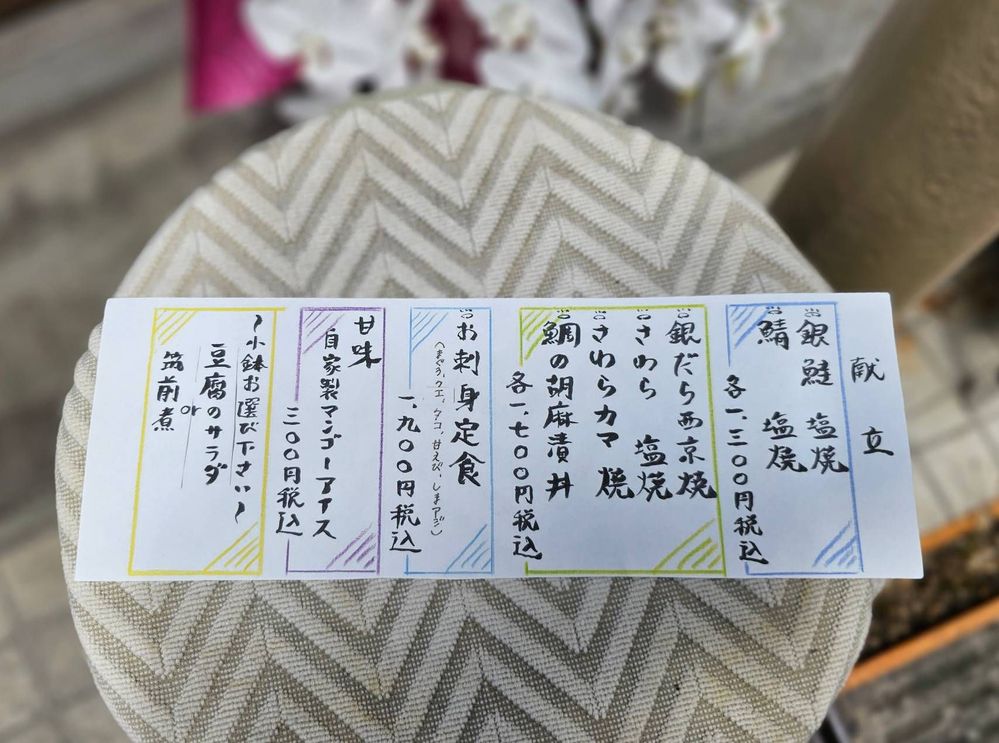 献立
銀鮭 塩焼
鯖 塩焼
各一、三〇〇円税込
銀だら西京焼
さわら 塩焼
さわらカマ 焼
鯛の胡麻漬丼
各一、七〇〇円税込
お刺身定食
(まぐろ、クエ、タコ、甘えび、しまアジ)
一、九〇〇円税込
甘味
自家製マンゴーアイス
三〇〇円税込
~小鉢お選び下さい~
豆腐のサラダ
or
筑前煮